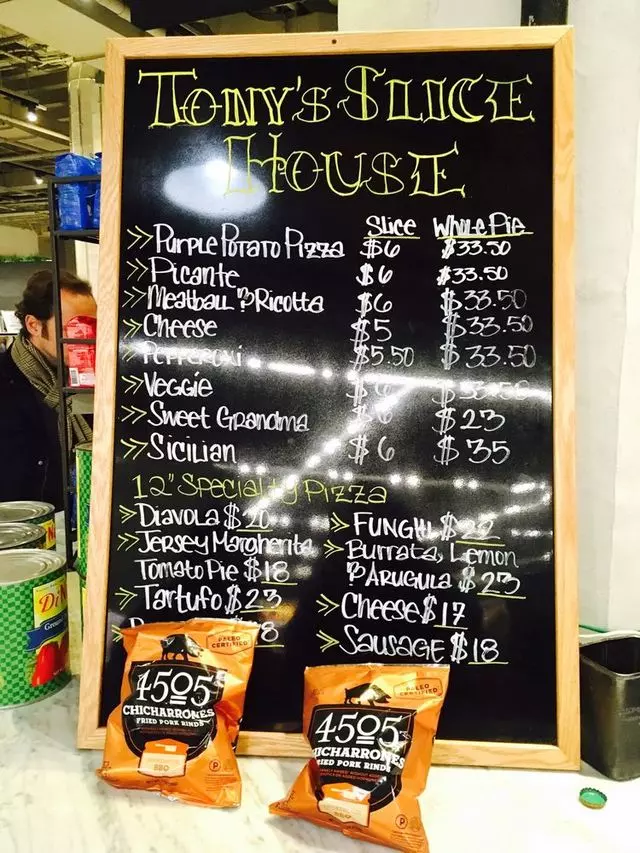 Tony's Slice
House
Slice Whole Pie
>> Purple Potato Pizza $6 $33.50
>> Picante $6 $33.50
>> Meatball & Ricotta $6 $33.50
>> Cheese $5 $33.50
>> Pepperoni $5.50 $33.50
>> Veggie $6 $33.50
>> Sweet Grandma $6 $23
>> Sicilian $6 $35
12" Specialty Pizza
>> Diavola $20
>> Jersey Margherita
Tomato Pie $18
>> Tartufo $23
8
>> Funghi $22
>> Burrata, Lemon
& Arugula $23
>> Cheese $17
>> Sausage $18
PALEO
CERTIFIED
4505
CHICHARRONES
FRIED PORK RINDS
BBQ
PALEO
CERTIFIED
4505
CHICHARRONES
FRIED PORK RINDS
BBQ